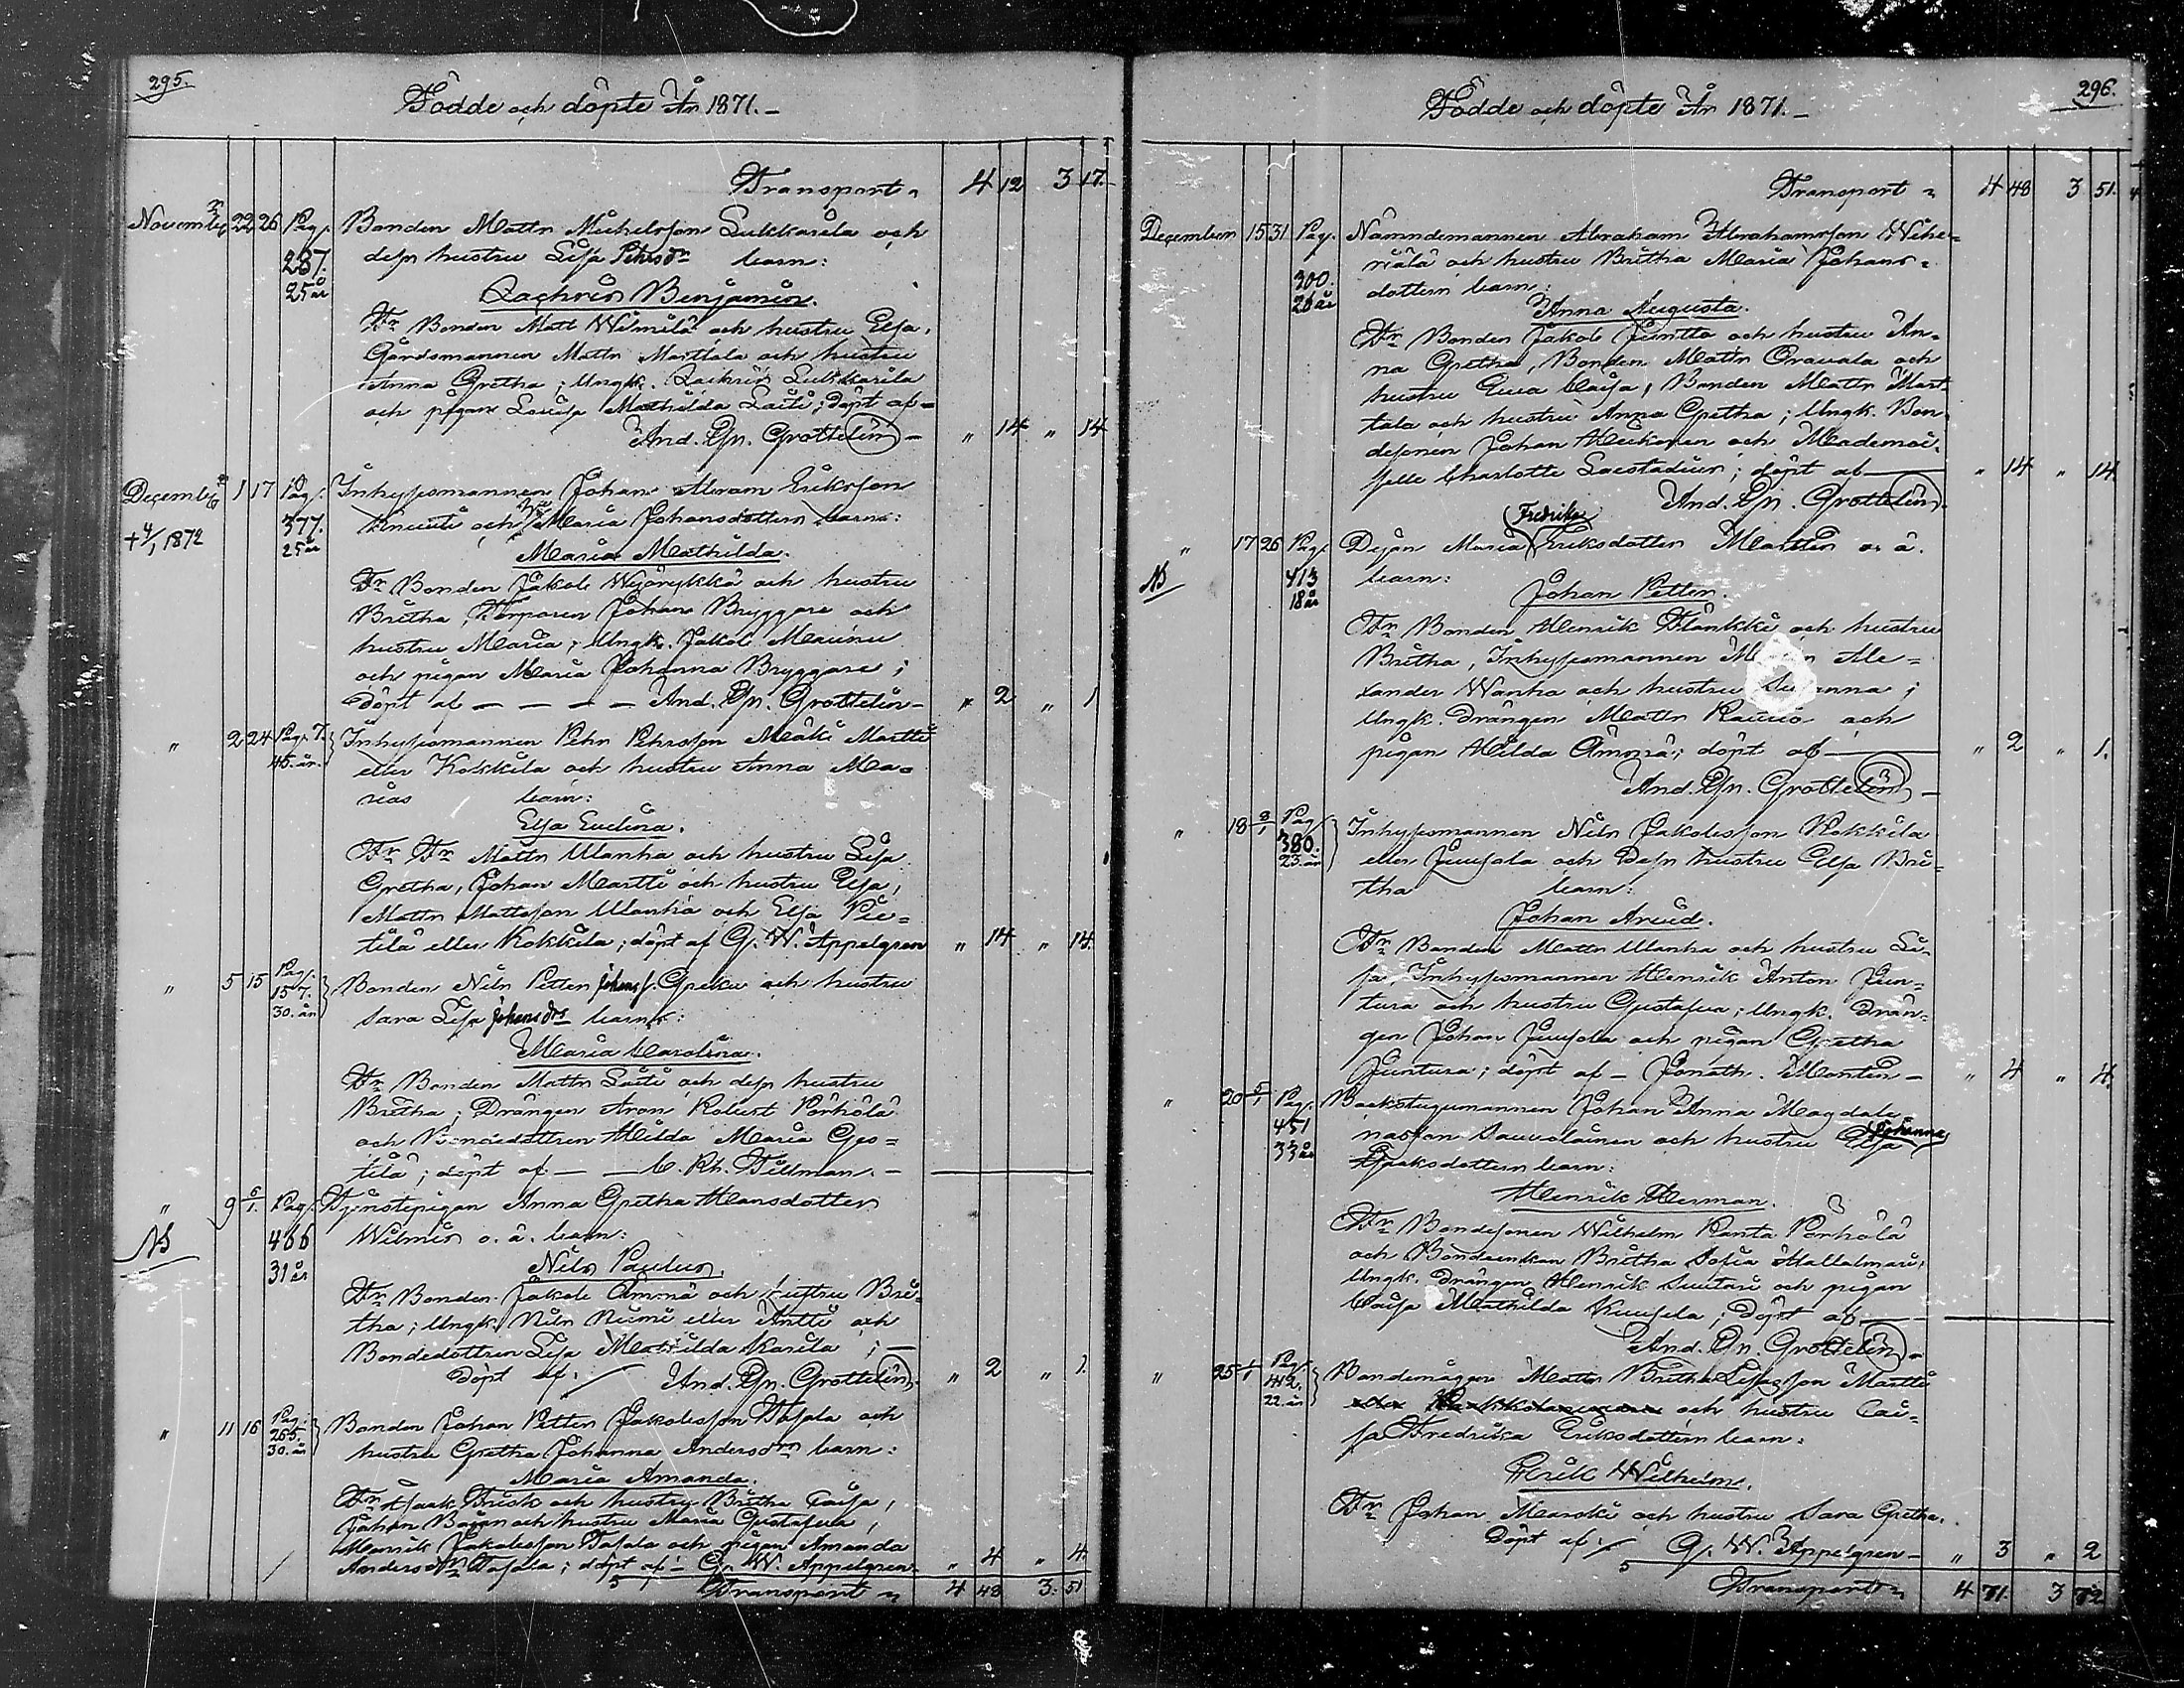 295.
Födde och döpte År 1871.
Transport 4 12 3 17.
Novemb 22 26 Pag. Bonden Matts Michelsson Lukkarila och
287. dess hustru Lisa Pehrsdr barn:
25 år Zachris Benjamin.
Fr Bonden Matt Wilmilä och hustru Elsa,
Gårdsmannen Matts Marttala och hustru
Anna Gretha; Ungk. Zachris Lukkarila
och pigan Lovisa Mathilda Laiti; döpt af
And. Gn. Grottelin " 14 " 14
Decemb 1 17 Pag. Inhysesmannen Johan Abram Eriksson
+ 4/1 1872 377. och Maria Johansdotters barn:
25 år Maria Mathilda.
Fr Bonden Jakob och hustru
Britha, Johan Bryggare och
hustru Maria; Ungk. Jakob
och pigan Maria Johanna Bryggare;
döpt af — — — — And. Gn. Grottelin " 2 " 1
" 2 24 Pag. 7. Inhysesmannen Pehr Pehrsson Mäki Martti
45. år. eller Kokkila och hustru Anna Ma=
rias barn:
Elsa Evelina.
Fr Fr Matts Ulanha och hustru Lisa
Gretha, Johan Martti och hustru Elsa,
Matts Mattsson Ulanha och Elsa Pie=
tilä eller Kokkila; döpt af G. W. Appelgren " 14 " 14.
" 5 15 Pag. 157. Bonden Nils Petter Johanss. Greku och hustru
30. år Sara Lisa Johansdrs barn:
Maria Carolina.
Fr Bonden Matts Laiti och dess hustru
Britha; Drängen Aron Robert Pörhölä
och Bondedottren Hilda Maria
tilä; döpt af — — C. Rh. Tillman. —
" 9 5/1. Pag. Tjenstepigan Anna Gretha Hansdotter
NB 466 Wilmis o. ä. barn:
31 år Nils Paulus.
Fr Bonden Jakob Ämmä och hustru Bri=
tha; Ungk. Nils Niemi eller Antti och
Bondedottren Lisa Mathilda Karila; —
Döpt af. And. Gn. Grottelin. " 2 " 1.
" 11 16 Pag: 265. Bonden Johan Petter Jakobsson Tasala och
30. år hustru Gretha Johanna Andersdrs barn:
Maria Amanda.
Fr Isaak Brisk och hustru Britha Caisa,
Johan och hustru Maria Gustafva,
Henrik Jakobsson Tasala och pigan Amanda
Andersdr Tasala; döpt af — G. W. Appelgren " 4 " 4.
5
Transport 4 48 3. 51
296.
Födde och döpte År 1871.
Transport 4 48 3 51.
December 15 31 Pag. Nämndemannen Abraham Abrahamsson Wihe=
300. riälä och hustru Britha Maria Johans=
26 år dotters barn:
Anna Augusta.
Fr Bonden Jakob Juntto och hustru An=
na Gretha, Bonden Matts Oravala och
hustru Eva Caisa, Bonden Matts Mart=
tala och hustru Anna Gretha; Ungk. Bon=
desonen Johan Heikonen och Mademoi=
selle Charlotte Laestadius; döpt af " 14 " 14
And. Gn. Grottelin.
Fredrika
" 17 26 Pag. Dejan Maria Eriksdotter Martten o. ä.
NB 413 barn:
18 år Johan Petter.
Fr Bonden Henrik Flänkki och hustru
Britha, Inhysesmannen Ale=
xander Wanha och hustru Susanna;
Ungk. Drängen Matts och
pigan Hilda Ämmä; döpt af " 2 " 1.
And. Gn. Grottelin
" 18 2/1 Pag 380. Inhysesmannen Nils Jakobsson Kokkila
23. år eller Juusola och dess hustru Elsa Bri=
tha barn:
Johan Arvid.
Fr Bonden Matts Ulanha och hustru Li=
sa, Inhysesmannen Henrik Anton Jun=
tura och hustru Gustafva; Ungk. Drän=
gen Johan Juusola och pigan Gretha
Juntura; döpt af — Jonath. Montin — " 4 " 4
" 20 5/1 Pag. Backstugumannen Johan Anna Magdale=
451 nasson Sauvolainen och hustru Elsa Johanna
33 år Isaksdotters barn:
Henrik Herman.
Fr Bondesonen Wilhelm Ranta Pörhölä
och Bondeenkan Britha Sofia
Ungk. Drängen Henrik Suutari och pigan
Caisa Mathilda; döpt af —
And. Gn. Grottelin
" 25 1/1 Pag. 412. Bondemågen Matts Britha Lisasson Martti
22. år eller och hustru Cai=
sa Fredrika Eriksdotters barn:
Erik Wilhelm.
Fr Johan Marski och hustru Sara Gretha.
Döpt af: G. W. Appelgren — " 3 " 2
5
Transport 4 71. 3 72